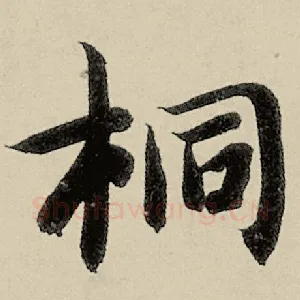 桐
Shufawang.CN